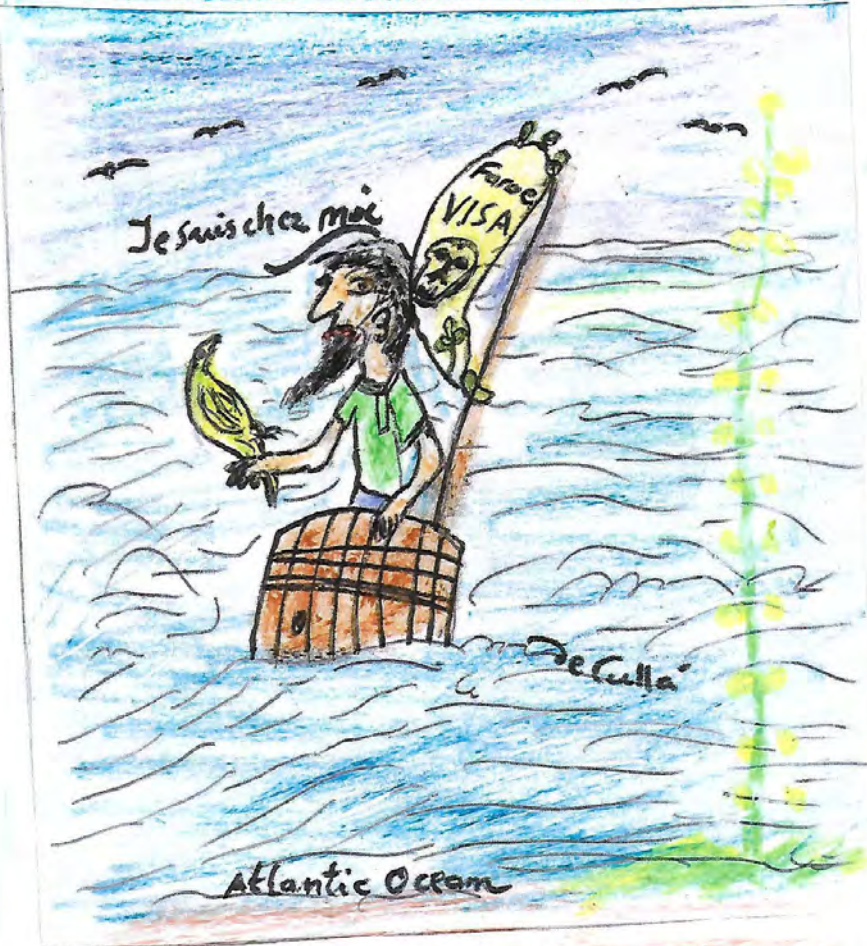 Je suis chez moi
Faroe
VISA
DeCullá
Atlantic Ocean